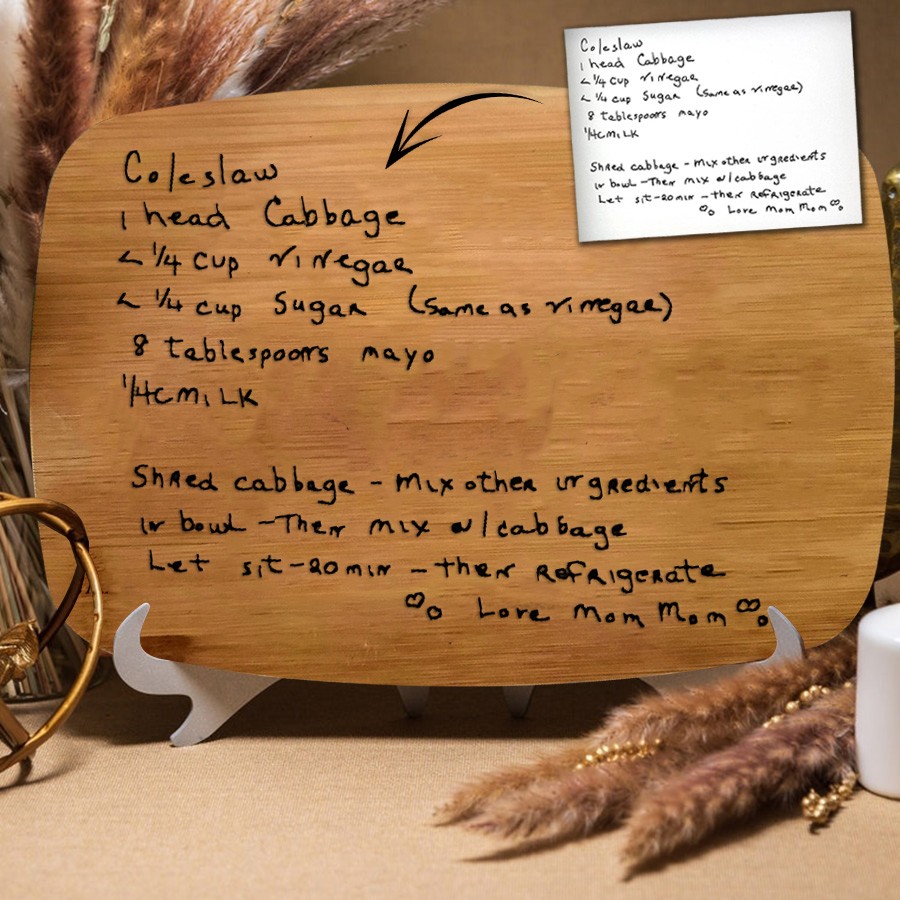 Coleslaw
1 head Cabbage
< 1/4 cup vinegar
< 1/4 cup Sugar (same as vinegar)
8 tablespoons mayo
1/4 c milk
Shred cabbage - mix other ingredients
in bowl - Then mix w/cabbage
Let sit - 20 min - then Refrigerate
Love Mom Mom
Coleslaw
1 head Cabbage
< 1/4 cup vinegar
< 1/4 cup Sugar (same as vinegar)
8 tablespoons mayo
1/4 c milk
Shred cabbage - mix other ingredients
in bowl - Then mix w/cabbage
Let sit - 20 min - then Refrigerate
Love Mom Mom